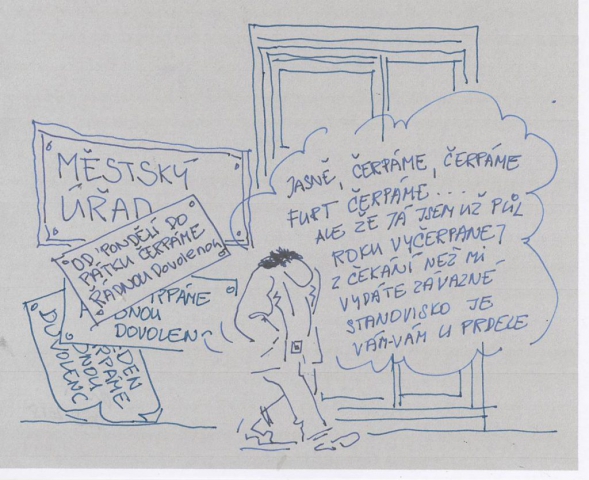 MĚSTSKÝ
ÚŘAD
OD PONDĚLÍ DO
PÁTKU ČERPÁME
ŘÁDNOU DOVOLENOU
RPÁME
DNOU
DOVOLEN
DEN
RPÁME
DNOU
DOVOLENC
JASNĚ, ČERPÁME, ČERPÁME
FURT ČERPÁME....
ALE ŽE JÁ JSEM UŽ PŮL
ROKU VYČERPANEJ
Z ČEKÁNÍ NEŽ MI
VYDÁTE ZÁVAZNÉ
STANOVISKO JE
VÁM-VÁM U PRDELE